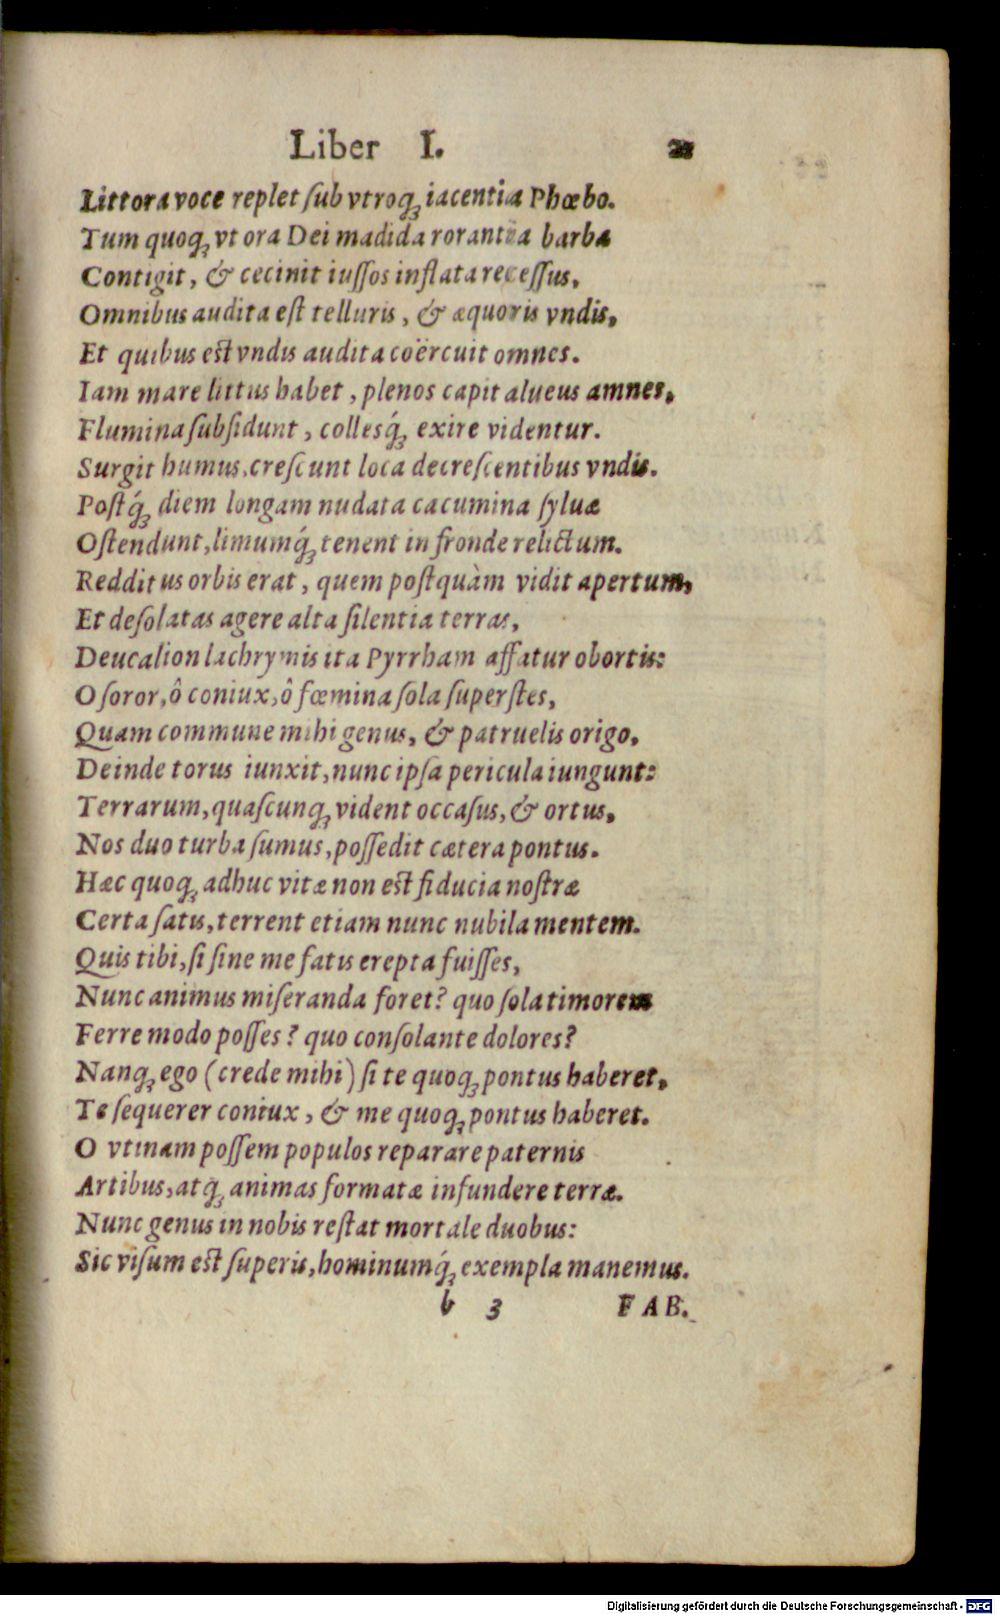 Liber I. 21
Littora voce replet ſub vtroq; iacentia Phœbo.
Tum quoq; vt ora Dei madida rorantia barba
Contigit, & cecinit iuſſos inflata receſſus,
Omnibus audita eſt telluris, & æquoris vndis,
Et quibus eſt vndis audita coërcuit omnes.
Iam mare littus habet, plenos capit alueus amnes,
Flumina ſubſidunt, collesq́; exire videntur.
Surgit humus, creſcunt loca decreſcentibus vndis.
Poſtq́; diem longam nudata cacumina ſyluæ
Oſtendunt, limumq́; tenent in fronde relictum.
Redditus orbis erat, quem poſtquàm vidit apertum,
Et deſolatas agere alta ſilentia terras,
Deucalion lachrymis ita Pyrrham affatur obortis:
O ſoror, ô coniux, ô fœmina ſola ſuperſtes,
Quam commune mihi genus, & patruelis origo,
Deinde torus iunxit, nunc ipſa pericula iungunt:
Terrarum, quaſcunq; vident occaſus, & ortus,
Nos duo turba ſumus, poſſedit cætera pontus.
Hæc quoq; adhuc vitæ non eſt fiducia noſtræ
Certa ſatis, terrent etiam nunc nubila mentem.
Quis tibi, ſi ſine me fatis erepta fuiſſes,
Nunc animus miſeranda foret? quo ſola timorem
Ferre modo poſſes? quo conſolante dolores?
Nanq; ego (crede mihi) ſi te quoq; pontus haberet,
Te ſequerer coniux, & me quoq; pontus haberet.
O vtinam poſſem populos reparare paternis
Artibus, atq́; animas formatæ infundere terræ.
Nunc genus in nobis reſtat mortale duobus:
Sic viſum eſt ſuperis, hominumq́; exempla manemus.
b 3 FAB.
Digitalisierung gefördert durch die Deutsche Forschungsgemeinschaft - DFG